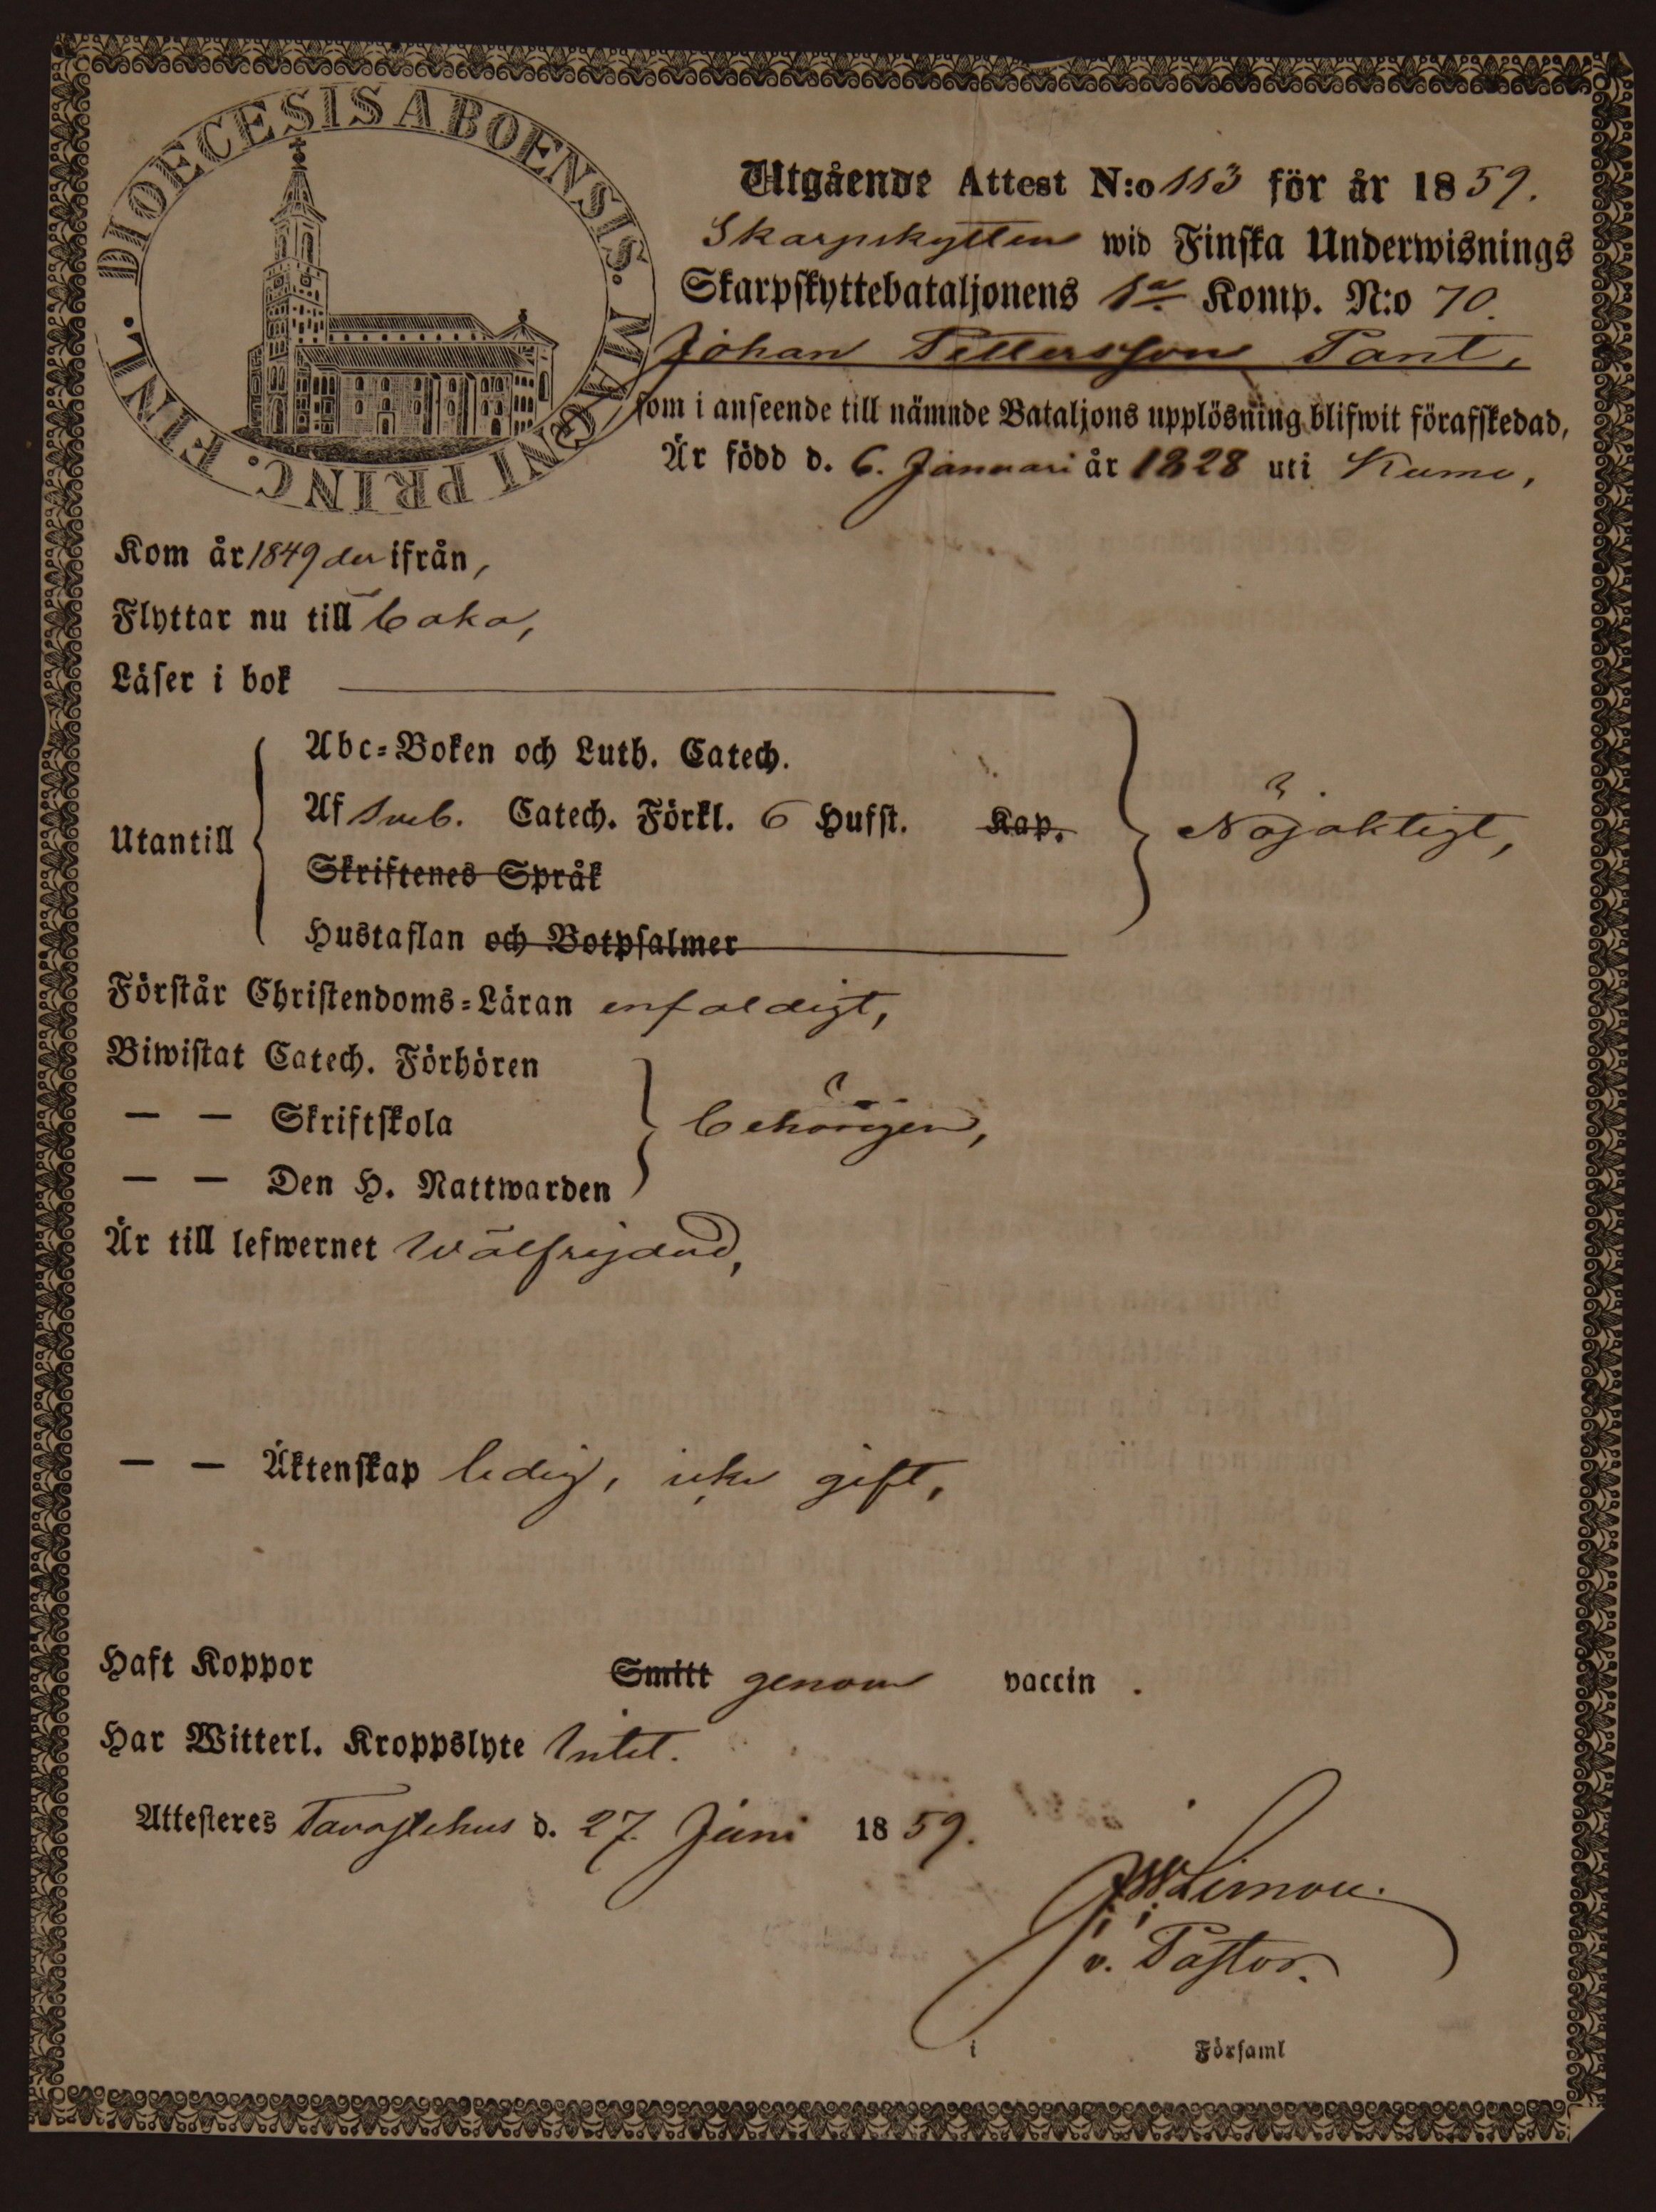 DIOECESIS ABOENSIS. MAGNI PRINC. FINL.
Utgående Attest N:o 113 för år 1859.
Skarpskytten wid Finska Underwisnings
Skarpskyttebataljonens 1a Komp. N:o 70.
Johan Pettersson Pant,
som i anseende till nämnde Bataljons upplösning blifwit förafskedad,
Är född d. 6. Januari år 1828 uti Kumo,
Kom år 1849 der ifrån,
Flyttar nu till
Läser i bok
Abc-Boken och Luth. Catech.
Af Sveb. Catech. Förkl. 6 Hufst. Kap.
Utantill
Nöjaktigt,
Skriftenes Språk
Hustaflan och Botpsalmer
Förstår Christendoms-Läran enfaldigt,
Biwistat Catech. Förhören
— — Skriftskola
behörigen,
— — Den H. Nattwarden
Är till lefwernet Wälfrejdad,
— — Äktenskap ledig, icke gift,
Haft Koppor Smitt genom vaccin.
Har Witterl. Kroppslyte Intet.
Attesteres Tavastehus d. 27. Juni 1859.
v. Pastor.
i Församl